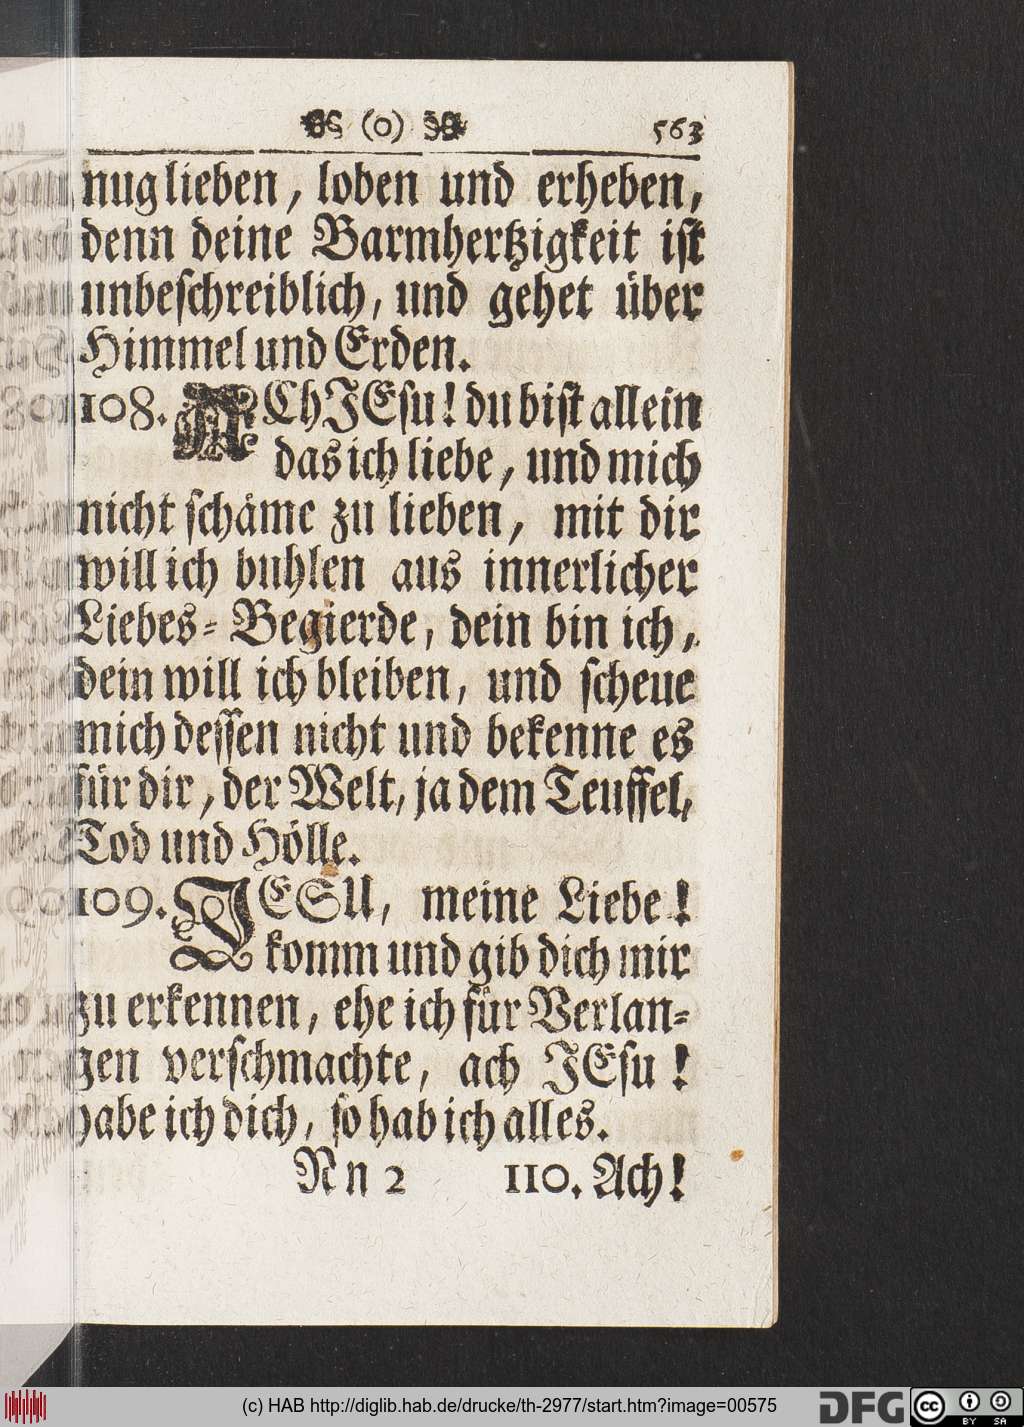 (o) 563
nug lieben, loben und erheben,
denn deine Barmhertzigkeit ist
unbeschreiblich, und gehet über
Himmel und Erden.
108. ACh JEsu! du bist allein
das ich liebe, und mich
nicht schäme zu lieben, mit dir
will ich buhlen aus innerlicher
Liebes-Begierde, dein bin ich,
dein will ich bleiben, und scheue
mich dessen nicht und bekenne es
für dir, der Welt, ja dem Teuffel,
Tod und Hölle.
109. JESU, meine Liebe!
komm und gib dich mir
zu erkennen, ehe ich für Verlan-
gen verschmachte, ach JEsu!
habe ich dich, so hab ich alles.
Nn 2 110. Ach!
(c) HAB http://diglib.hab.de/drucke/th-2977/start.htm?image=00575
DFG
cc BY SA